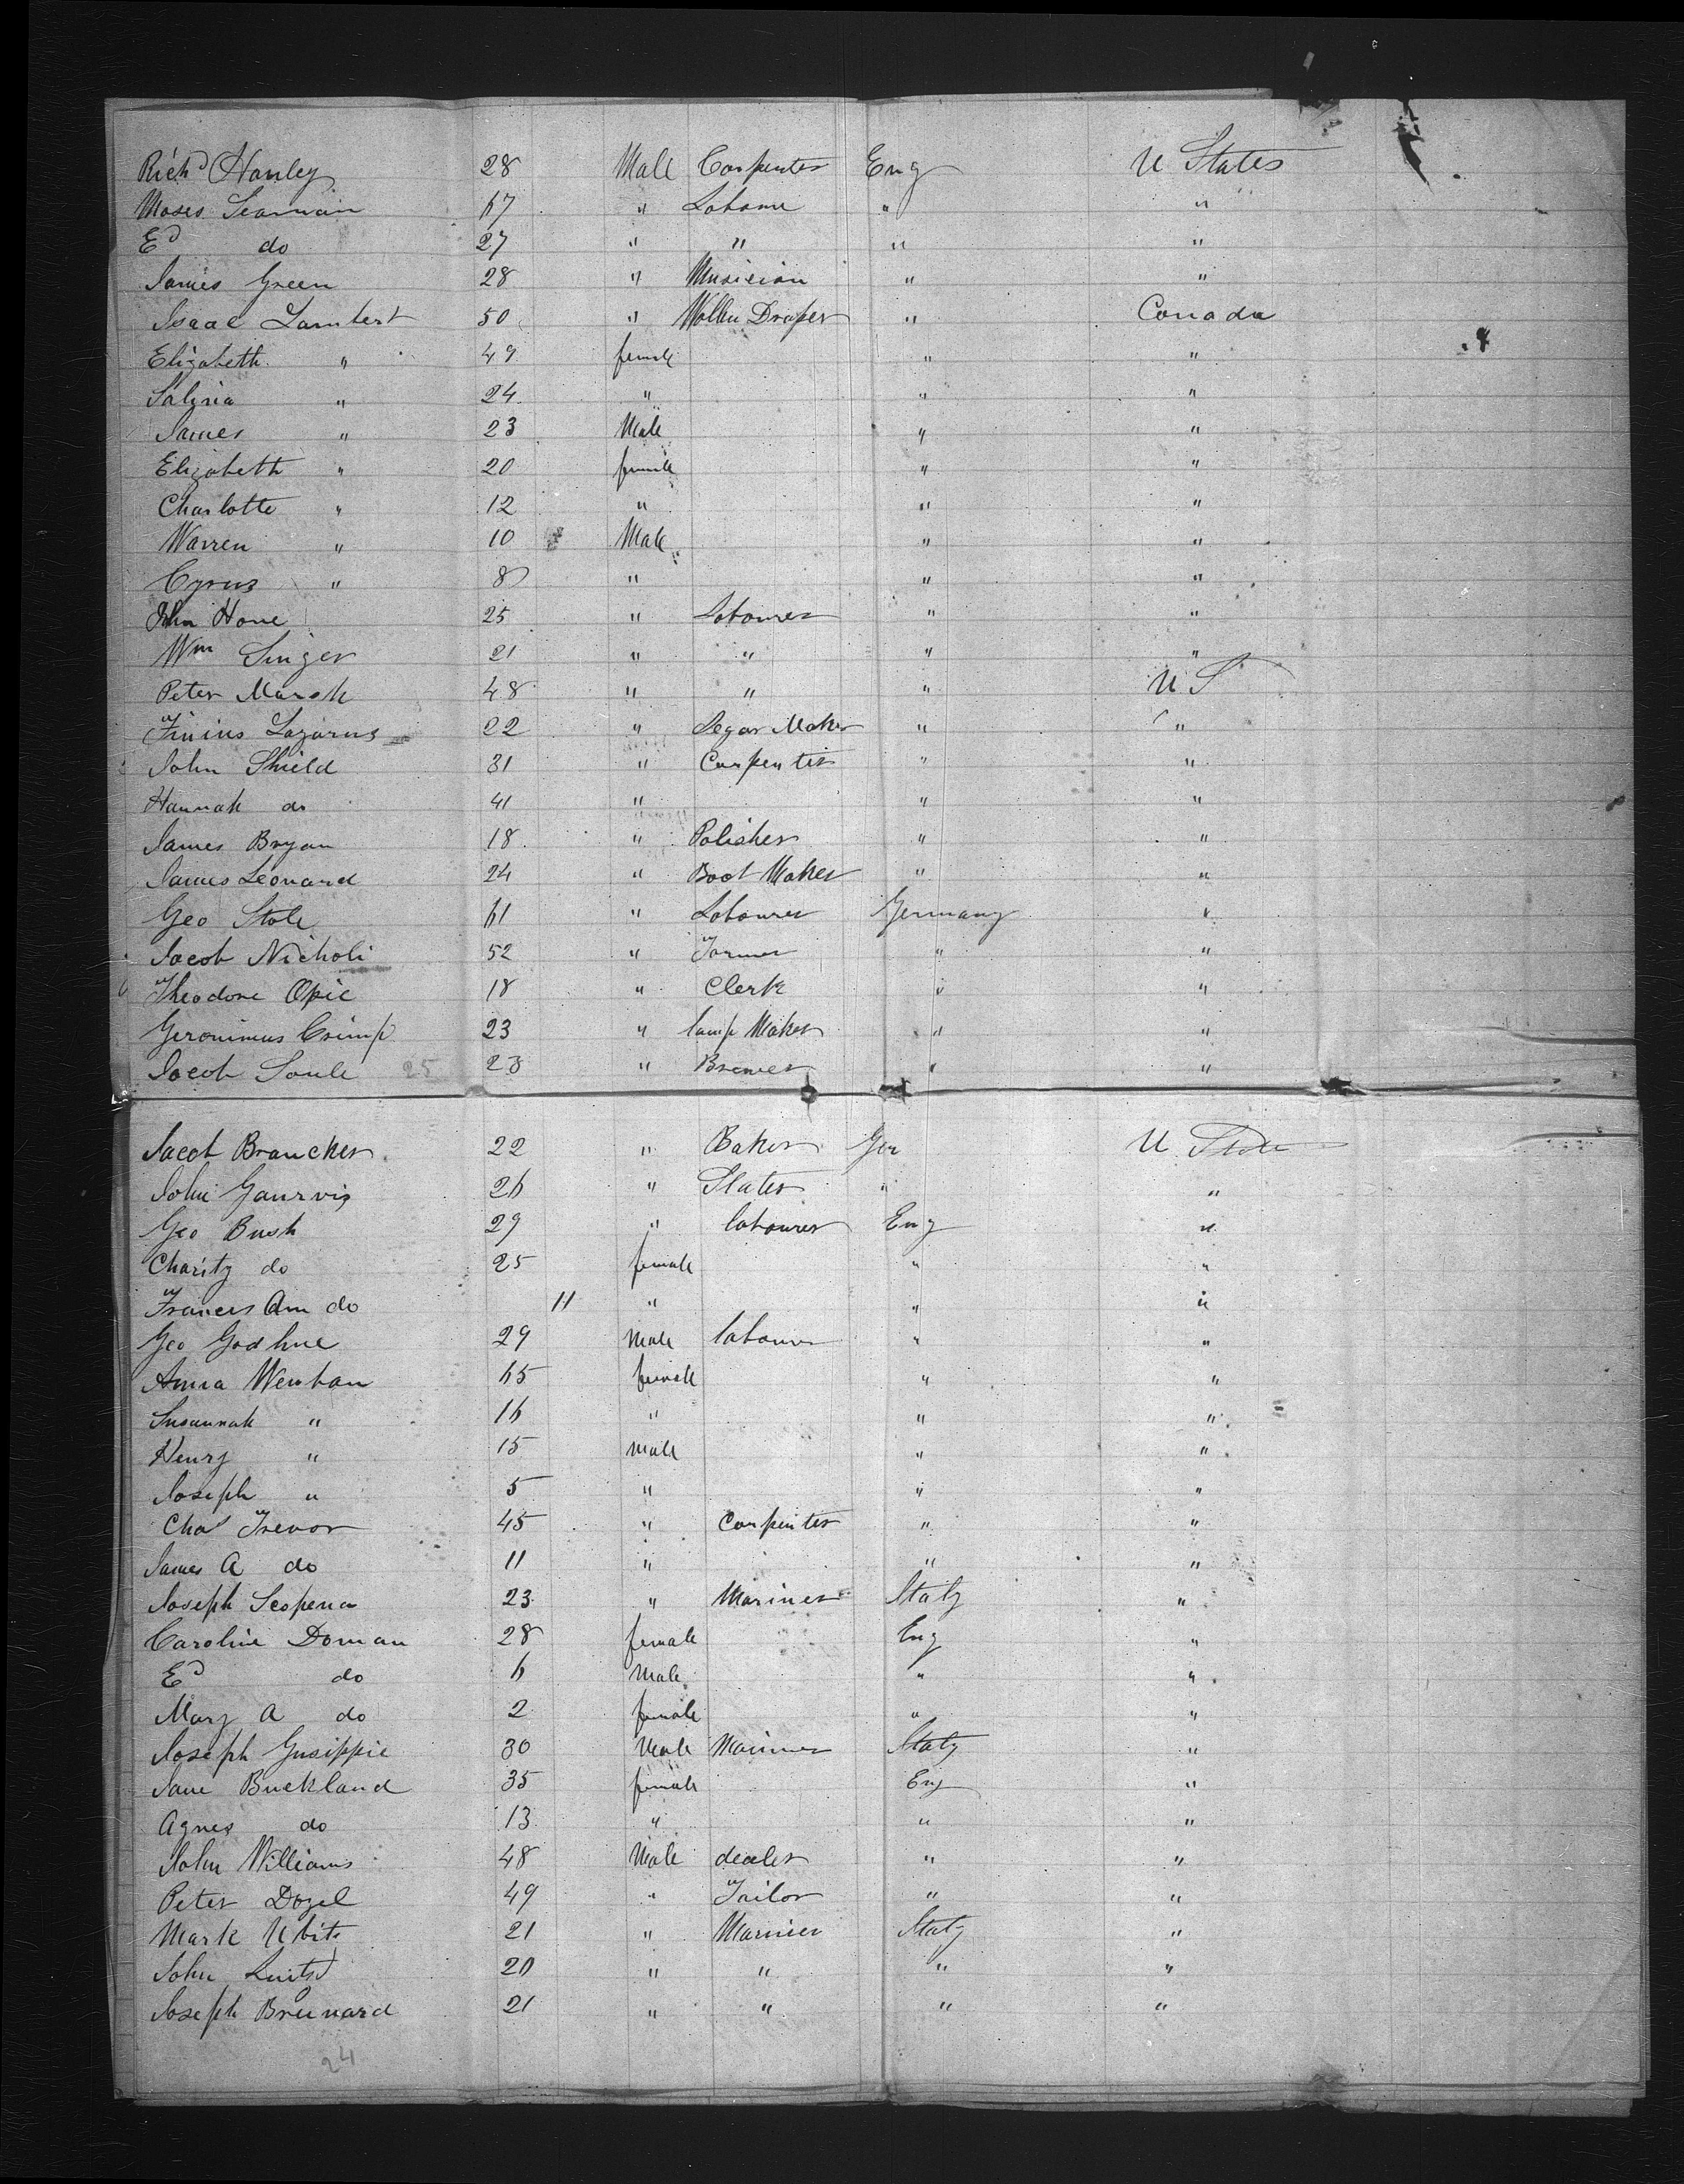 Richd Hanley 28 Male Carpenter Eng U States
Moses Seaman 67 " Laboure " "
Ed do 27 " " " "
James Green 28 " Musician " "
Isaac Lambert 50 " Wollen Draper " Canada
Elizabeth " 49 female " "
Salina " 24 " " "
James " 23 Male " "
Elizabeth " 20 female " "
Charlotte " 12 " " "
Warren " 10 Male " "
Cyrus " 8 " " "
John Hone 25 " Labourer " "
Wm Singer 21 " " " "
Peter Marsh 48 " " " U S
Lazarus 22 " Segar Maker " "
John Shield 31 " Carpenter " "
Hannah do 41 " " "
James Bryan 18 " Polisher " "
James Leonard 24 " Boot Maker " "
Geo Stole 61 " Labourer Germany "
Jacob Nicholi 52 " Farmer " "
Theodore Opie 18 " Clerk " "
Geronimus Crimp 23 " lamp Maker " "
Jacob Soule 25 23 " Brewer " "
Jacob Brancker 22 " Baker Ger U State
John Gaurvis 26 " Slater " "
Geo Bush 29 " labourer Eng "
Charity do 25 female " "
Frances Ann do 11 " " "
Geo Godhue 29 Male labourer " "
Anna Wenban 65 female " "
Susannah " 16 " " "
Henry " 15 male " "
Joseph " 5 " " "
Chas Trevor 45 " Carpenter " "
James A do 11 " " "
Joseph Scopena 23 " Mariner Italy "
Caroline Doman 28 female Eng "
Ed do 6 Male " "
Mary A do 2 female " "
Joseph Gusippie 30 Male Mariner Italy "
Jane Buckland 35 female Eng "
Agnes do 13 " " "
John Williams 48 Male dealer " "
Peter Dozel 49 " Tailor " "
Mark 21 " Mariner Italy "
John 20 " " " "
Joseph Breunard 21 " " " "
24